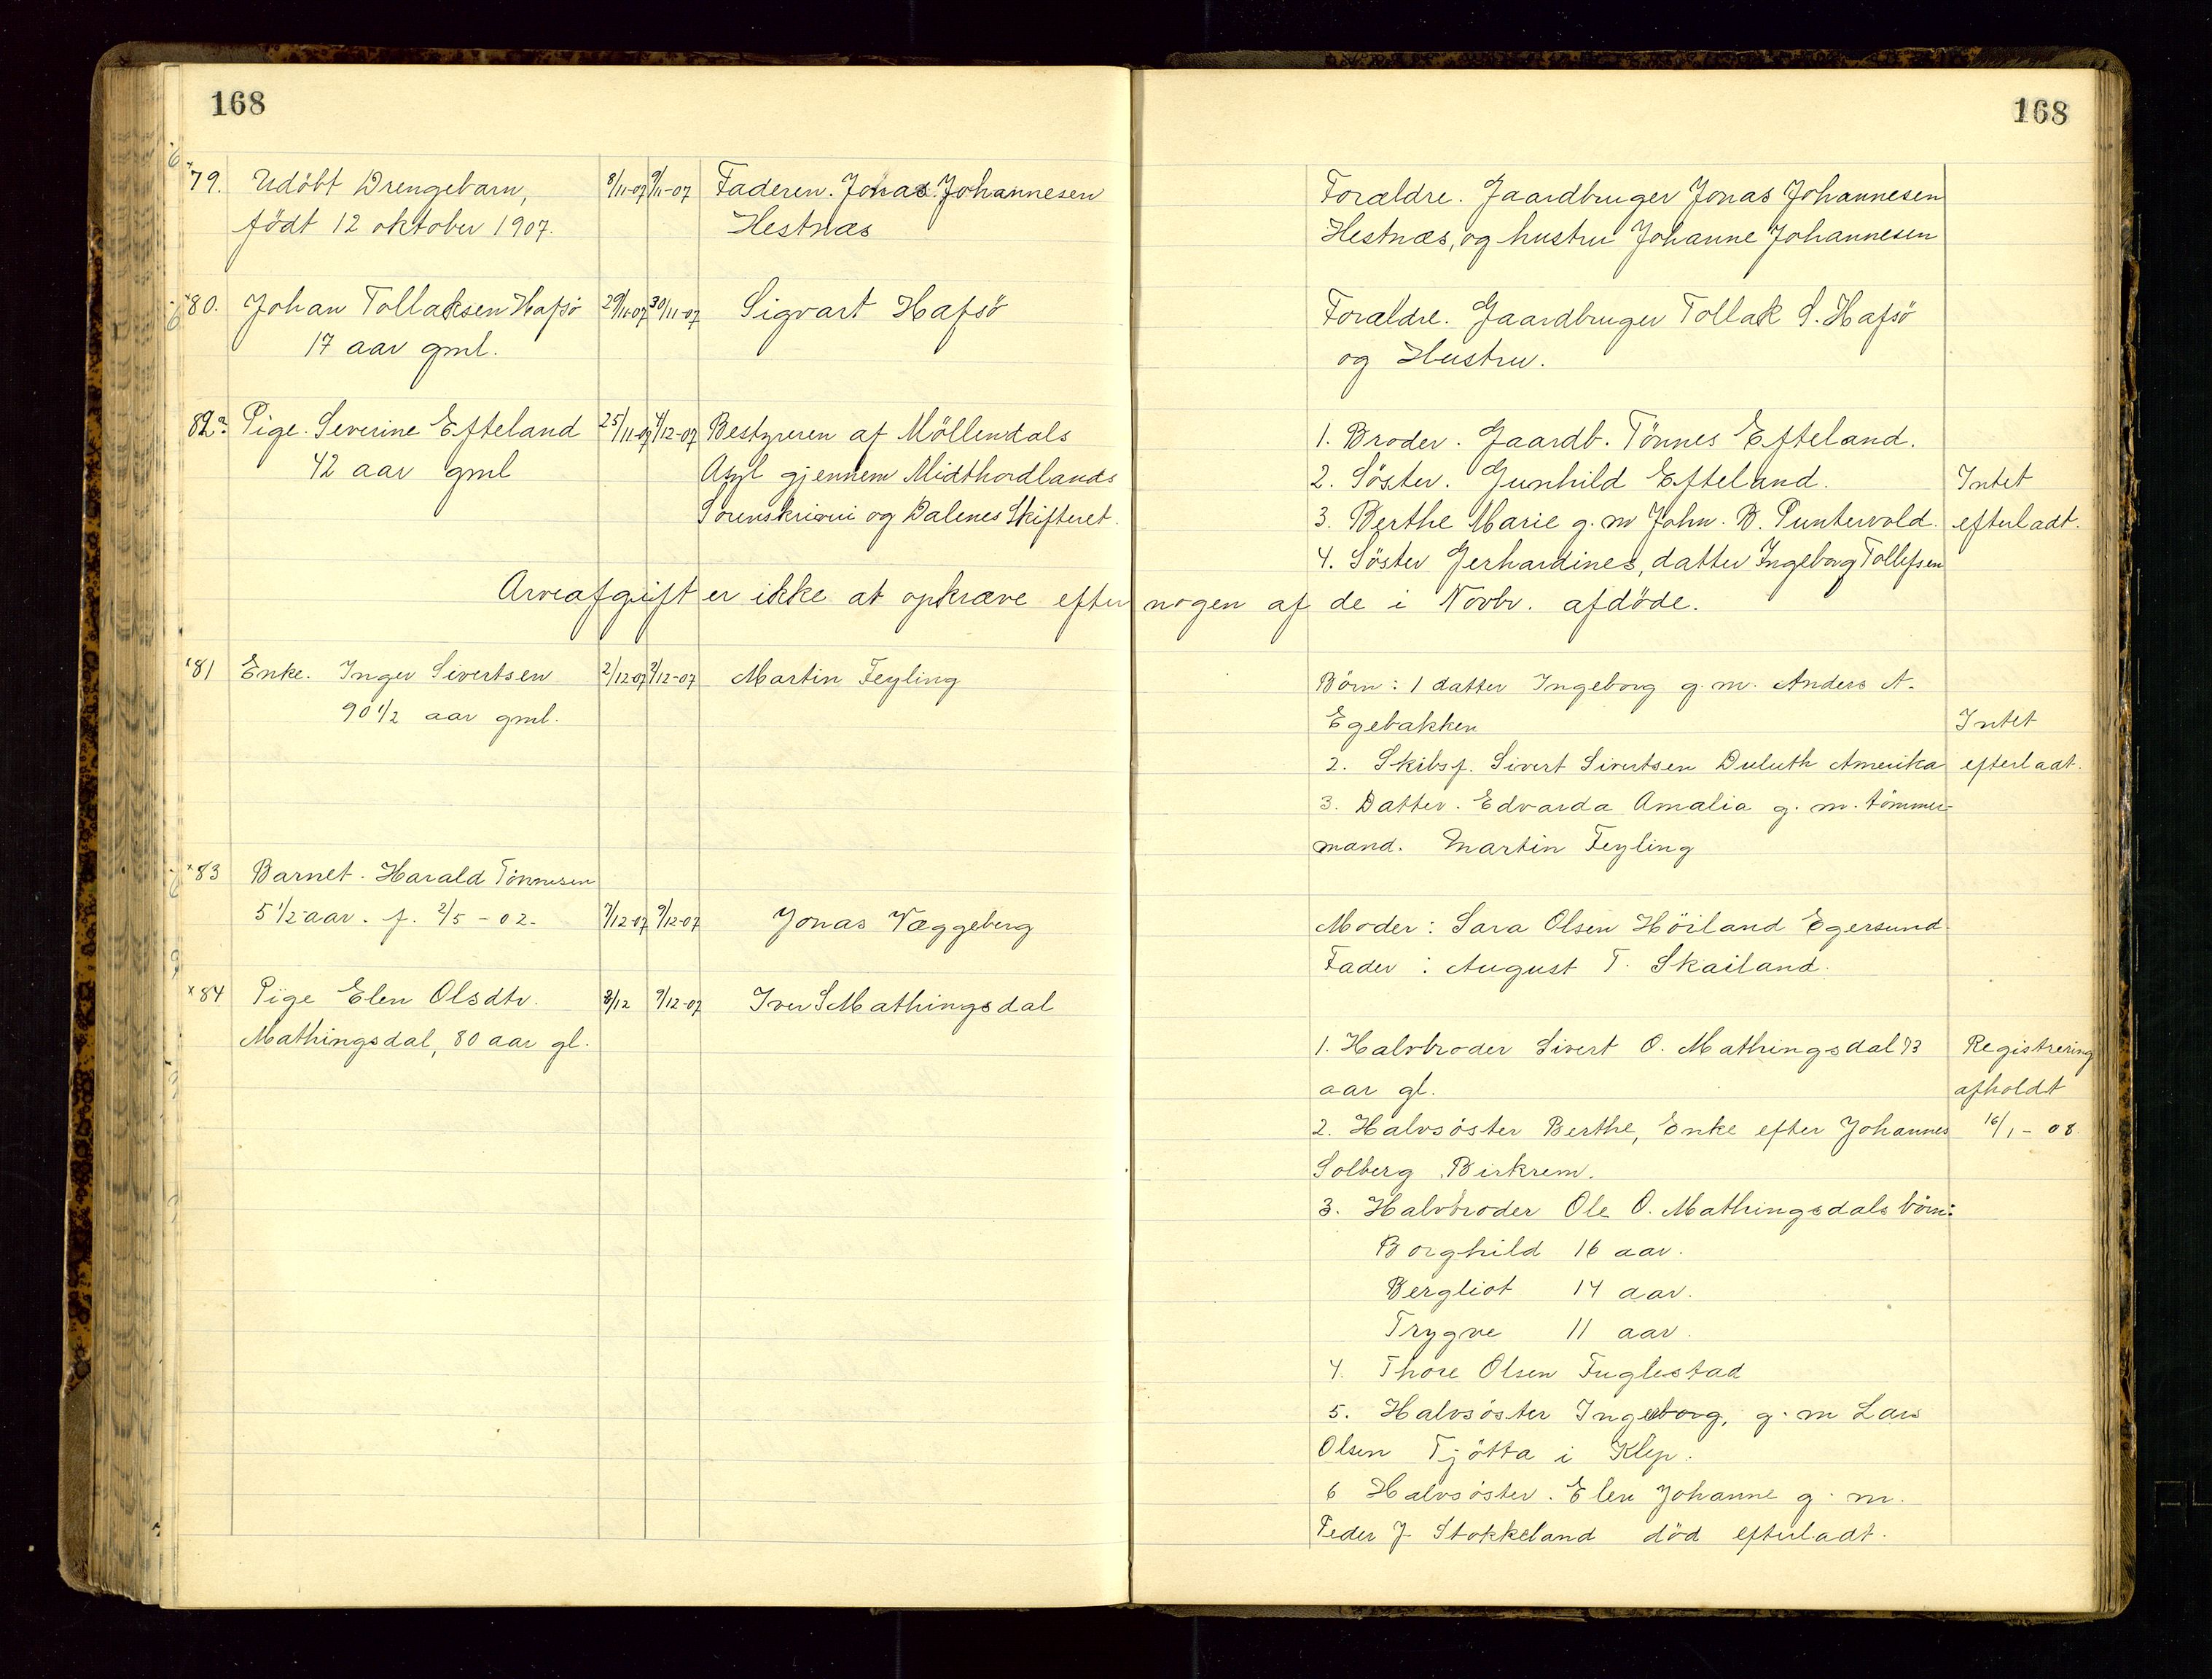 168
79. Udöbt Drengebarn, 8/11-07 9/11-07 Faderen. Jonas Johannesen
födt 12 oktober 1907. Hestnæs
80. Johan Tollaksen Hafsö 29/11-07 30/11-07 Sigvart Hafsö
17 aar gml.
82a. Pige. Severine Efteland 25/11-07 4/12-07 Bestyreren af Möllendals
42 aar gml Asyl gjennem Midthordlands
Sorenskriveri og Dalenes Skifteret.
Arveafgift er ikke at opkræve efter nogen af de i Novbr. afdöde.
81 Enke. Inger Sivertsen 2/12-07 3/12-07 Martin Feyling
90 1/2 aar gml.
83 Barnet. Harald Tönnesen
5 1/2 aar. f. 2/5-02. 7/12-07 9/12-07 Jonas Væggeberg
84 Pige Elen Olsdtr. 8/12 9/12-07 Iver S Mathingsdal
Mathingsdal, 80 aar gl.
168
Forældre. Gaardbruger Jonas Johannesen
Hestnæs, og hustru Johanne Johannesen
Forældre. Gaardbruger Tollak S. Hafsö
og Hustru.
1. Broder. Gaardb. Tönnes Efteland.
2. Söster. Gunhild Efteland. Intet
3. Berthe Marie g. m John. B. Puntervold. efterladt.
4. Söster Gerhardines, datter Ingeborg Tollefsen
Börn: 1 datter Ingeborg g. m. Anders A.
Egebakken Intet
2. Skibsf. Sivert Sivertsen Duluth Amerika efterladt.
3. Datter. Edvarda Amalia g. m. tömmer-
mand. Martin Feyling
Moder: Sara Olsen Höiland Egersund.
Fader: August T. Skailand.
1. Halvbroder Sivert O. Mathingsdal 73 Registrering
aar gl. afholdt
2. Halvsöster Berthe, Enke efter Johannes 16/1-08.
Solberg Birkrem.
3. Halvbroder Ole O. Mathingsdals börn:
Borghild 16 aar.
Bergliot 14 aar.
Trygve 11 aar.
4. Thore Olsen Fuglestad
5. Halvsöster Ingeborg, g. m Lars
Olsen Tjötta i Klep.
6 Halvsöster. Elen Johanne g. m.
Peder J. Stokkeland död efterladt.